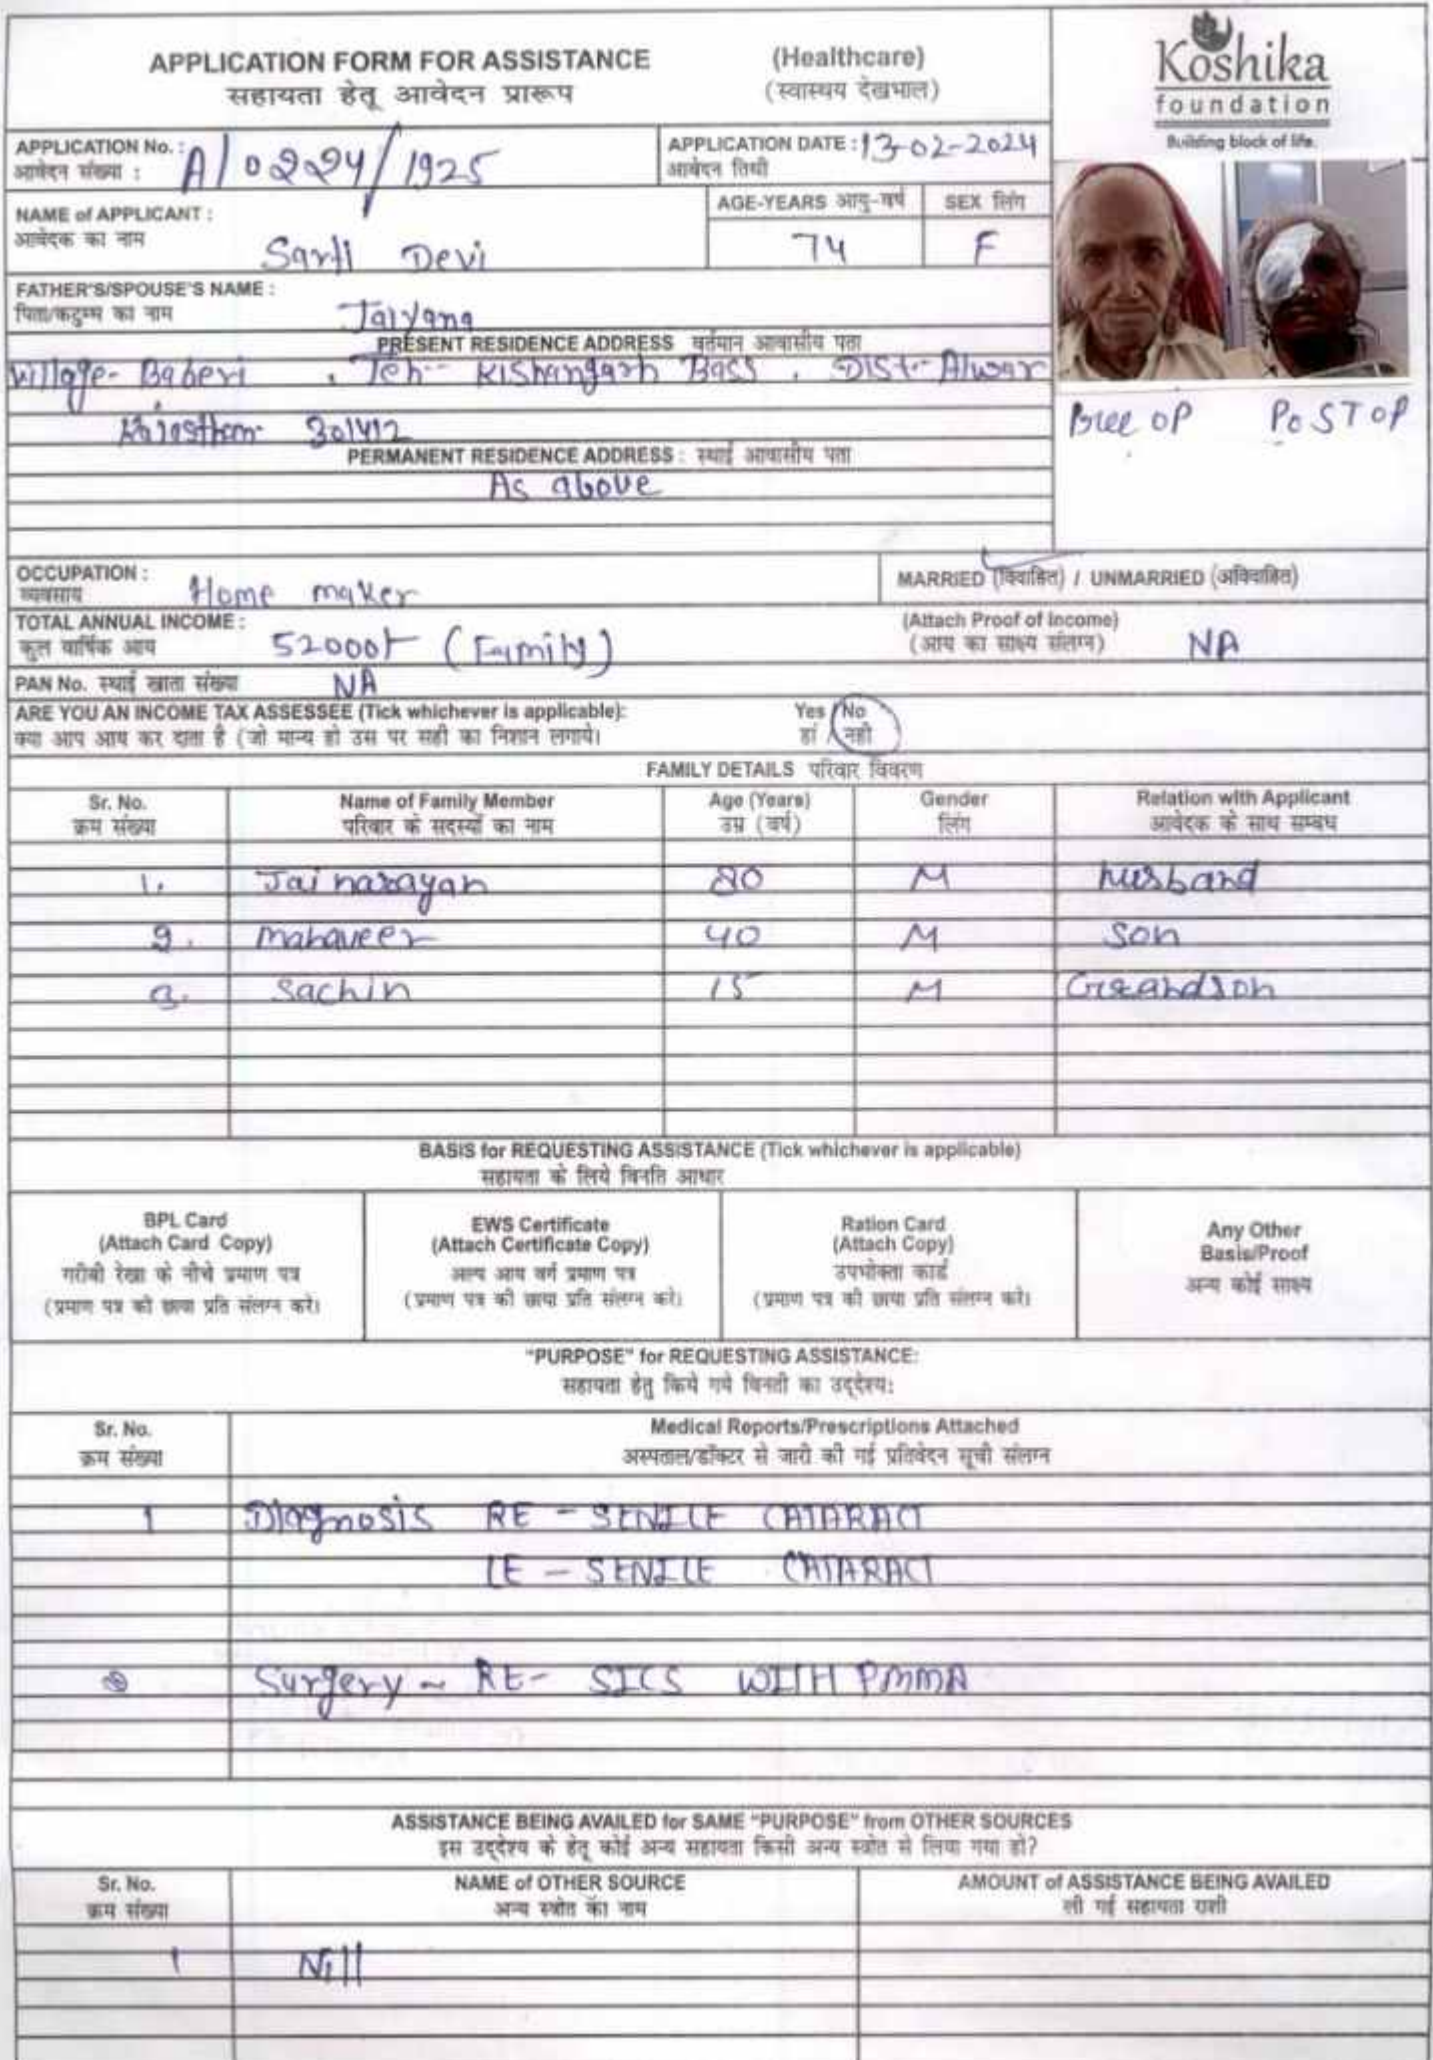 APPLICATION FORM FOR ASSISTANCE (Healthcare)
सहायता हेतू आवेदन प्रारूप (स्वास्थय देखभाल)
Koshika
foundation
Building block of life.
APPLICATION No. : A/02224/1925
आवेदन संख्या :
APPLICATION DATE : 13-02-2024
आवेदन तिथी
NAME of APPLICANT :
आवेदक का नाम
Devi
AGE-YEARS आयु-वर्ष SEX लिंग
74 F
FATHER'S/SPOUSE'S NAME :
पिता/कटुम्म का नाम
PRESENT RESIDENCE ADDRESS वर्तमान आवासीय पता
Village- Baberi , Teh- Kishangarh Bass , Dist- Alwar
301412
Pree OP POST OP
PERMANENT RESIDENCE ADDRESS : स्थाई आवासीय पता
As above
OCCUPATION :
व्यवसाय Home maker
MARRIED (विवाहित) / UNMARRIED (अविवाहित)
TOTAL ANNUAL INCOME :
कुल वार्षिक आय 52000/- (Family)
(Attach Proof of Income)
(आय का साक्ष्य संलग्न) NA
PAN No. स्थाई खाता संख्या NA
ARE YOU AN INCOME TAX ASSESSEE (Tick whichever is applicable): Yes / No
क्या आप आय कर दाता है (जो मान्य हो उस पर सही का निशान लगाये। हां / नही
FAMILY DETAILS परिवार विवरण
Sr. No. Name of Family Member Age (Years) Gender Relation with Applicant
क्रम संख्या परिवार के सदस्यों का नाम उम्र (वर्ष) लिंग आवेदक के साथ सम्बध
1. Jai narayan 80 M husband
2. mahaveer 40 M Son
3. Sachin 15 M Grandson
BASIS for REQUESTING ASSISTANCE (Tick whichever is applicable)
सहायता के लिये विनति आधार
BPL Card
(Attach Card Copy)
गरीबी रेखा के नीचे प्रमाण पत्र
(प्रमाण पत्र की छाया प्रति संलग्न करे।
EWS Certificate
(Attach Certificate Copy)
अल्प आय वर्ग प्रमाण पत्र
(प्रमाण पत्र की छाया प्रति संलग्न करे।
Ration Card
(Attach Copy)
उपभोक्ता कार्ड
(प्रमाण पत्र की छाया प्रति संलग्न करे।
Any Other
Basis/Proof
अन्य कोई साक्ष्य
"PURPOSE" for REQUESTING ASSISTANCE:
सहायता हेतु किये गये विनती का उद्देश्य:
Sr. No. Medical Reports/Prescriptions Attached
क्रम संख्या अस्पताल/डॉक्टर से जारी की गई प्रतिवेदन सूची संलग्न
1 Diagnosis RE - SENILE CATARACT
LE - SENILE CATARACT
Surgery - RE- SICS WITH PMMA
ASSISTANCE BEING AVAILED for SAME "PURPOSE" from OTHER SOURCES
इस उद्देश्य के हेतू कोई अन्य सहायता किसी अन्य स्त्रोत से लिया गया हो?
Sr. No. NAME of OTHER SOURCE AMOUNT of ASSISTANCE BEING AVAILED
क्रम संख्या अन्य स्त्रोत का नाम ली गई सहायता राशी
1 Nill